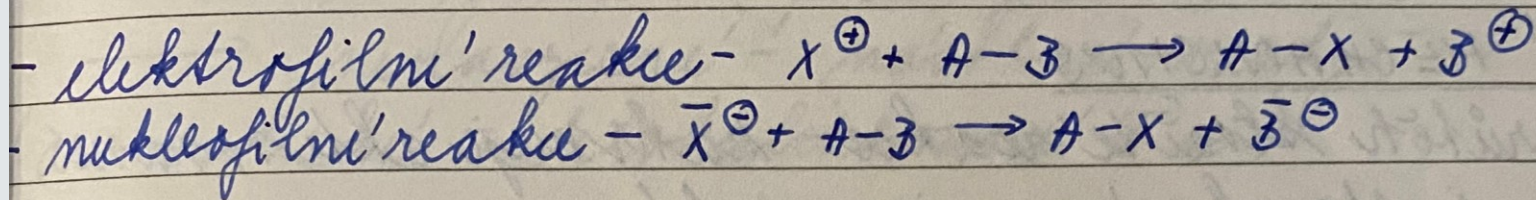 - elektrofilní reakce - X⊕ + A-B → A-X + B⊕
- nukleofilní reakce - X̄⊖ + A-B → A-X + B̄⊖